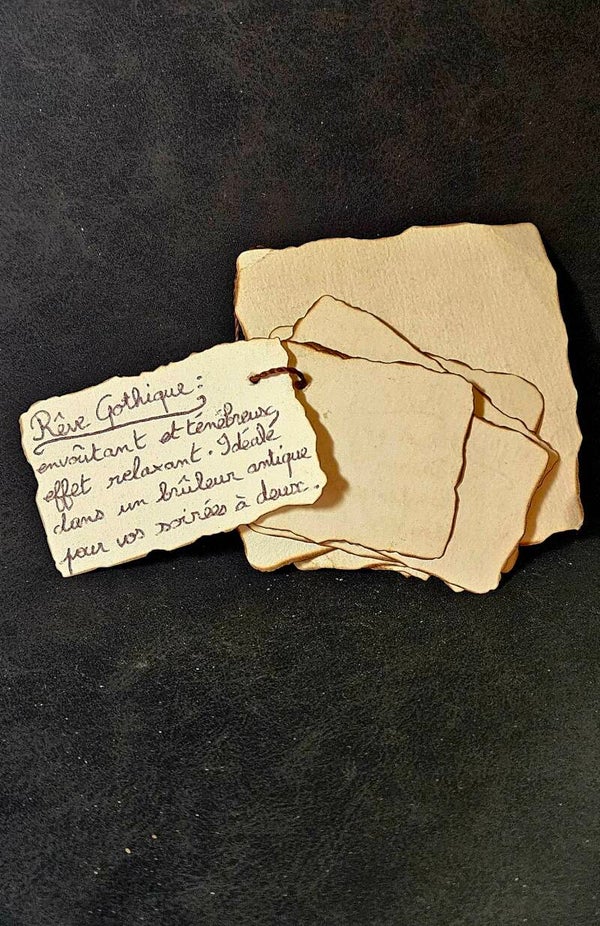 Rêve Gothique :
envoûtant et ténébreux,
effet relaxant. Idéale
dans un brûleur antique
pour vos soirées à deux.